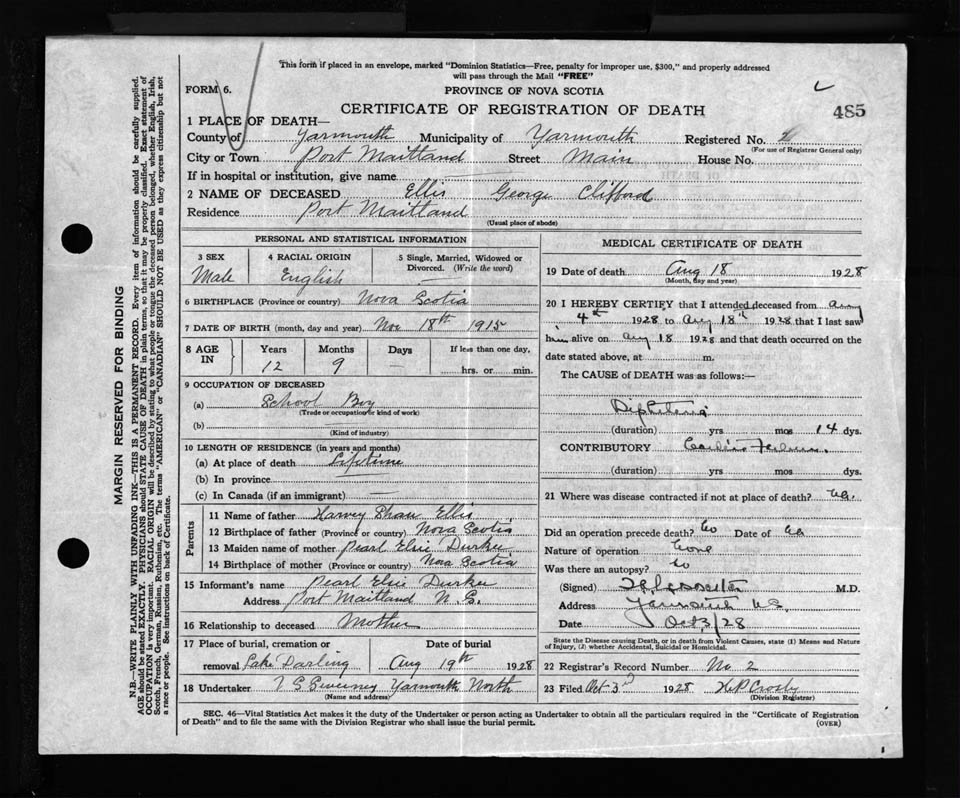 This form if placed in an envelope, marked "Dominion Statistics—Free, penalty for improper use, $300," and properly addressed
will pass through the Mail "FREE"
FORM 6.
PROVINCE OF NOVA SCOTIA
CERTIFICATE OF REGISTRATION OF DEATH
485
1 PLACE OF DEATH—
County of Yarmouth Municipality of Yarmouth Registered No. 2
(For use of Registrar General only)
City or Town Port Maitland Street Main House No.
If in hospital or institution, give name
2 NAME OF DECEASED Ellis George Clifford
Residence Port Maitland
(Usual place of abode)
PERSONAL AND STATISTICAL INFORMATION
3 SEX 4 RACIAL ORIGIN 5 Single, Married, Widowed or
Divorced. (Write the word)
Male English —
6 BIRTHPLACE (Province or country) Nova Scotia
7 DATE OF BIRTH (month, day and year) Nov 18th 1915
8 AGE IN Years Months Days If less than one day,
12 9 — hrs. or min.
9 OCCUPATION OF DECEASED
(a) School Boy
(Trade or occupation or kind of work)
(b)
(Kind of industry)
10 LENGTH OF RESIDENCE (in years and months)
(a) At place of death Lifetime
(b) In province
(c) In Canada (if an immigrant) —
Parents
11 Name of father Harvey Shaw Ellis
12 Birthplace of father (Province or country) Nova Scotia
13 Maiden name of mother Pearl Elsie Durkee
14 Birthplace of mother (Province or country) Nova Scotia
15 Informant's name Pearl Elsie Durkee
Address Port Maitland N. S.
16 Relationship to deceased Mother
17 Place of burial, cremation or Date of burial
removal Lake Darling Aug 19th 1928
18 Undertaker Sweeney Yarmouth North
(Name and address)
MEDICAL CERTIFICATE OF DEATH
19 Date of death Aug 18 1928
(Month, day and year)
20 I HEREBY CERTIFY that I attended deceased from Aug
4th 1928 to Aug 18th 1928 that I last saw
him alive on Aug 18 1928 and that death occurred on the
date stated above, at m.
The CAUSE of DEATH was as follows:—
Diphtheria
(duration) yrs mos 14 dys.
CONTRIBUTORY Cardiac Failure
(duration) yrs mos dys.
21 Where was disease contracted if not at place of death?
Did an operation precede death? No Date of
Nature of operation None
Was there an autopsy? No
(Signed) M.D.
Address Yarmouth N.S.
Date Oct 3/28
State the Disease causing Death, or in death from Violent Causes, state (1) Means and Nature
of Injury, (2) whether Accidental, Suicidal or Homicidal.
22 Registrar's Record Number No. 2
23 Filed Oct 3 1928 Crosby
(Division Registrar)
SEC. 46—Vital Statistics Act makes it the duty of the Undertaker or person acting as Undertaker to obtain all the particulars required in the "Certificate of Registration
of Death" and to file the same with the Division Registrar who shall issue the burial permit.
(OVER)
MARGIN RESERVED FOR BINDING
N.B.—WRITE PLAINLY WITH UNFADING INK—THIS IS A PERMANENT RECORD. Every item of information should be carefully supplied.
AGE should be stated EXACTLY. PHYSICIANS should STATE CAUSE OF DEATH in plain terms, so that it may be properly classified. Exact statement of
OCCUPATION is very important. RACIAL ORIGIN will be described by stating to what people or tongue the deceased person belonged, whether English, Irish,
Scotch, French, German, Russian, Ruthenian, etc. The terms "AMERICAN" or "CANADIAN" SHOULD NOT BE USED as they express citizenship but not
a race or people. See instructions on back of Certificate.